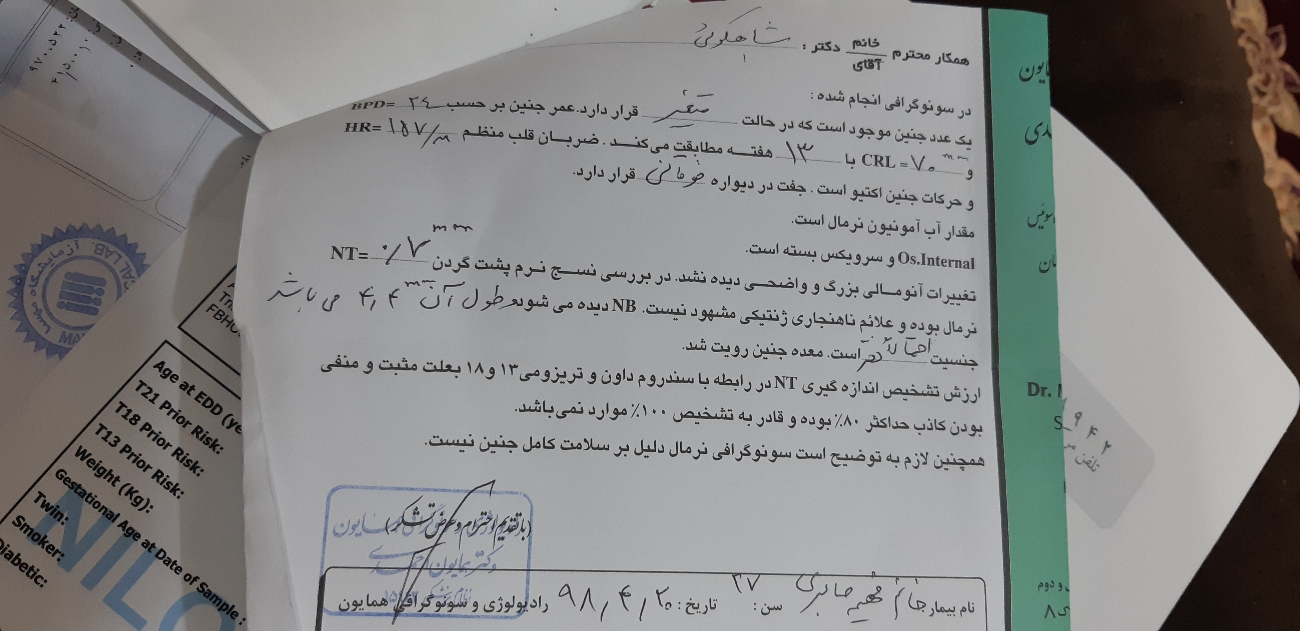 همکار محترم خانم آقای دکتر : شاهکوئی
در سونوگرافی انجام شده :
یک عدد جنین موجود است که در حالت متغیر قرار دارد.عمر جنین بر حسب BPD= ۲۴
و CRL = ۷۰ mm با ۱۳ هفته مطابقت می‌کند . ضربان قلب منظم HR= ۱۵۷/m
و حرکات جنین اکتیو است . جفت در دیواره فوقانی قرار دارد.
مقدار آب آمونیون نرمال است.
Os.Internal و سرویکس بسته است.
تغییرات آنومالی بزرگ و واضحی دیده نشد. در بررسی نسج نرم پشت گردن NT= ۰/۷ mm
نرمال بوده و علائم ناهنجاری ژنتیکی مشهود نیست. NB دیده می شود و طول آن ۴,۴ mm می باشد
جنسیت احتمالاً است. معده جنین رویت شد.
ارزش تشخیص اندازه گیری NT در رابطه با سندروم داون و تریزومی ۱۳ و ۱۸ بعلت مثبت و منفی
بودن کاذب حداکثر ۸۰٪ بوده و قادر به تشخیص ۱۰۰٪ موارد نمی‌باشد.
همچنین لازم به توضیح است سونوگرافی نرمال دلیل بر سلامت کامل جنین نیست.
(با تقدیم احترام و عرض تشکر)
نام بیمار: خانم فهیمه صابری سن: ۲۷ تاریخ: ۹۸/۴/۲۰ رادیولوژی و سونوگرافی همایون
Age at EDD
T21 Prior Risk:
T18 Prior Risk:
T13 Prior Risk:
Weight (Kg):
Gestational Age at Date of Sample :
Twin:
Smoker:
Diabetic:
NILO
Dr.
۹۴۲
تلفن